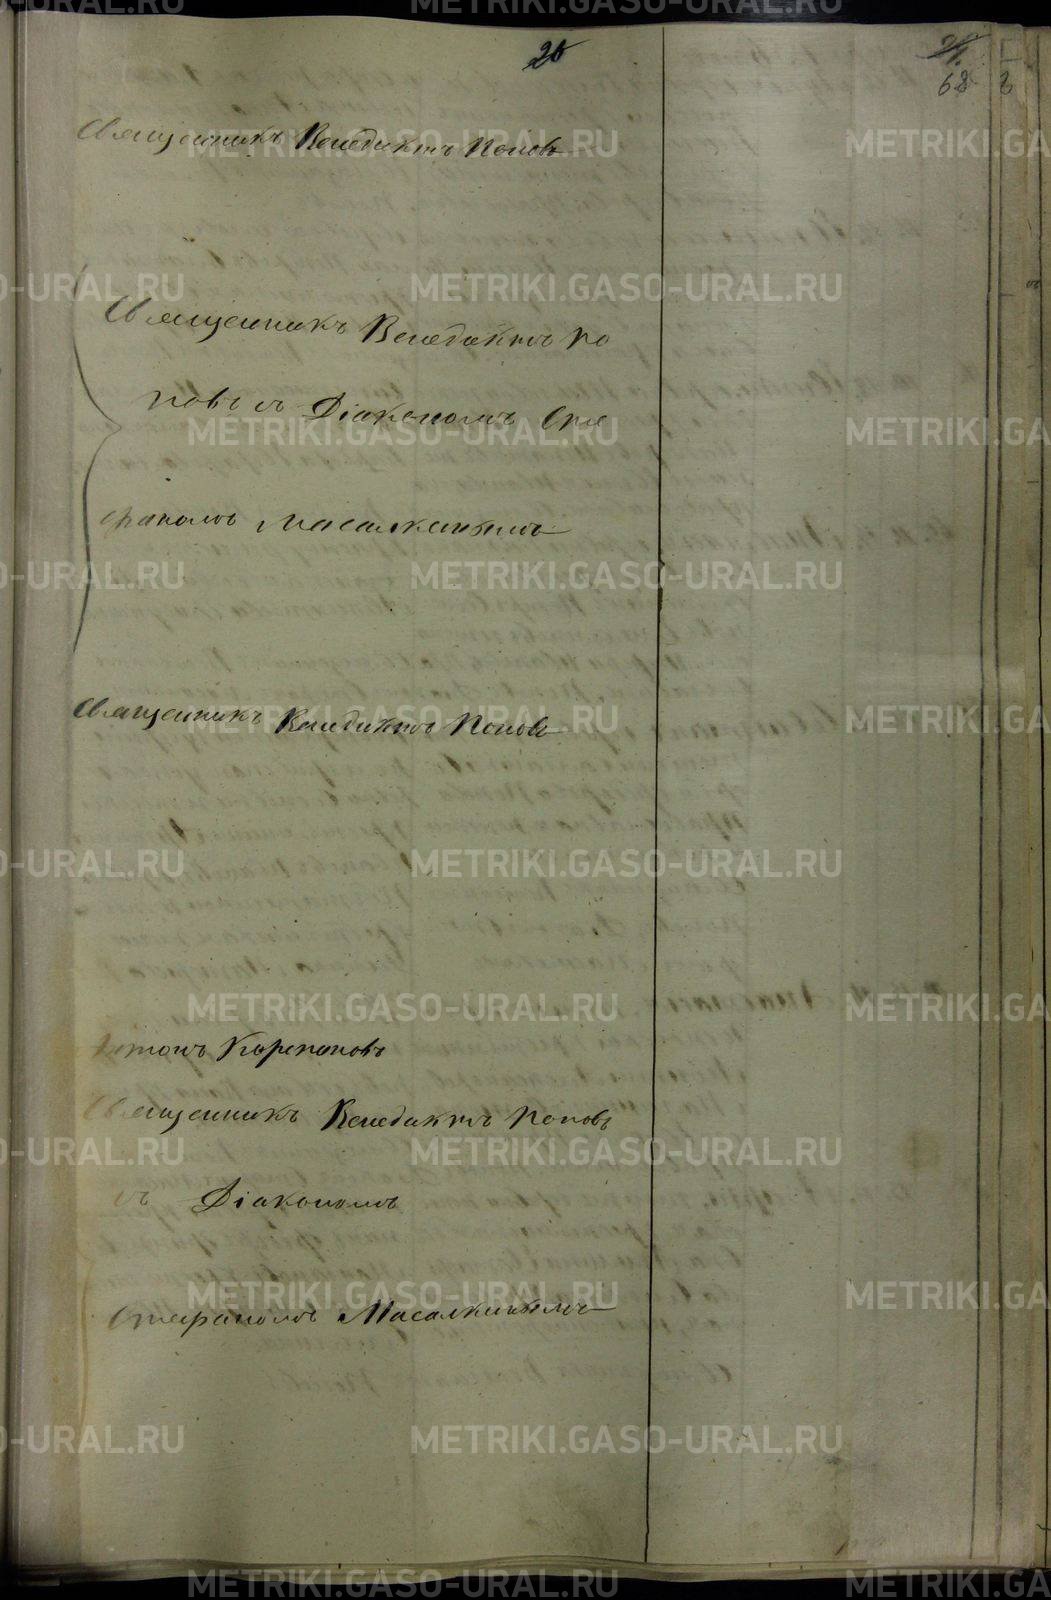 26
68
Священникъ Венедиктъ Поповъ
Священникъ Венедиктъ По
повъ съ Діакономъ Сте
фаномъ Масалкинымъ
Священникъ Венедиктъ Поповъ
Антонъ Корепановъ
Священникъ Венедиктъ Поповъ
съ Діакономъ
Стефаномъ Масалкинымъ
METRIKI.GASO-URAL.RU